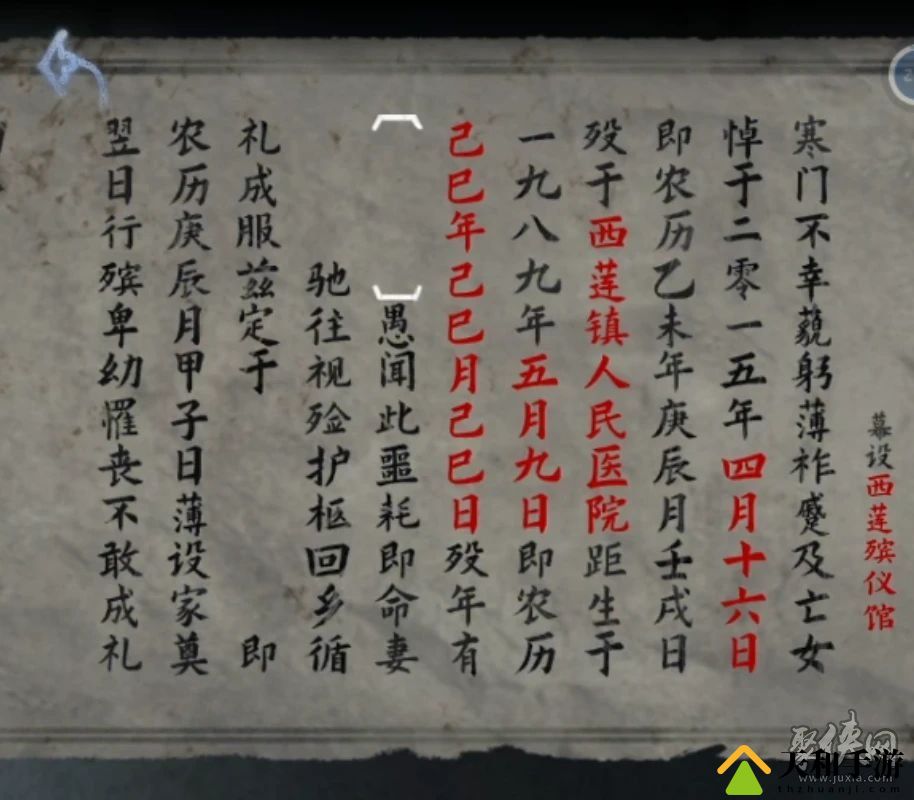 幕设西莲殡仪馆
寒门不幸藐躬薄祚蹙及亡女
悼于二零一五年四月十六日
即农历乙未年庚辰月壬戌日
殁于西莲镇人民医院距生于
一九八九年五月九日即农历
己巳年己巳月己巳日殁年有
愚闻此噩耗即命妻
驰往视殓护柩回乡循
礼成服兹定于 即
农历庚辰月甲子日薄设家奠
翌日行殡卑幼罹丧不敢成礼
聚侠网
www.juxia.com
天和手游
thzhuanji.com